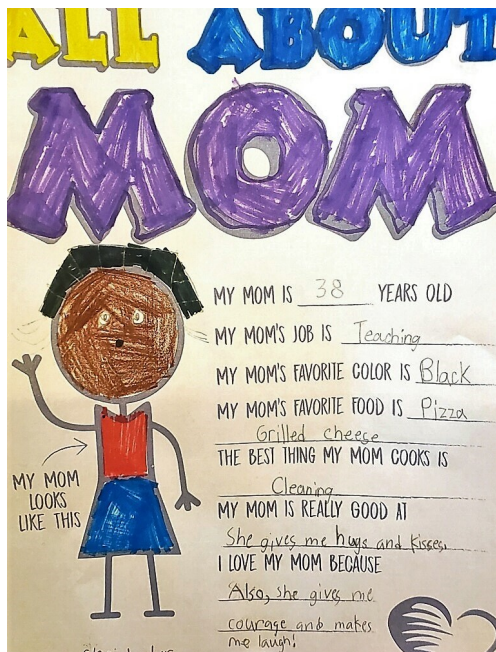 ALL ABOUT
MOM
MY MOM IS 38 YEARS OLD
MY MOM'S JOB IS Teaching
MY MOM'S FAVORITE COLOR IS Black
MY MOM'S FAVORITE FOOD IS Pizza
Grilled cheese
THE BEST THING MY MOM COOKS IS
Cleaning
MY MOM IS REALLY GOOD AT
She gives me hugs and kisses.
I LOVE MY MOM BECAUSE
Also, she gives me
courage and makes
me laugh!
MY MOM
LOOKS
LIKE THIS